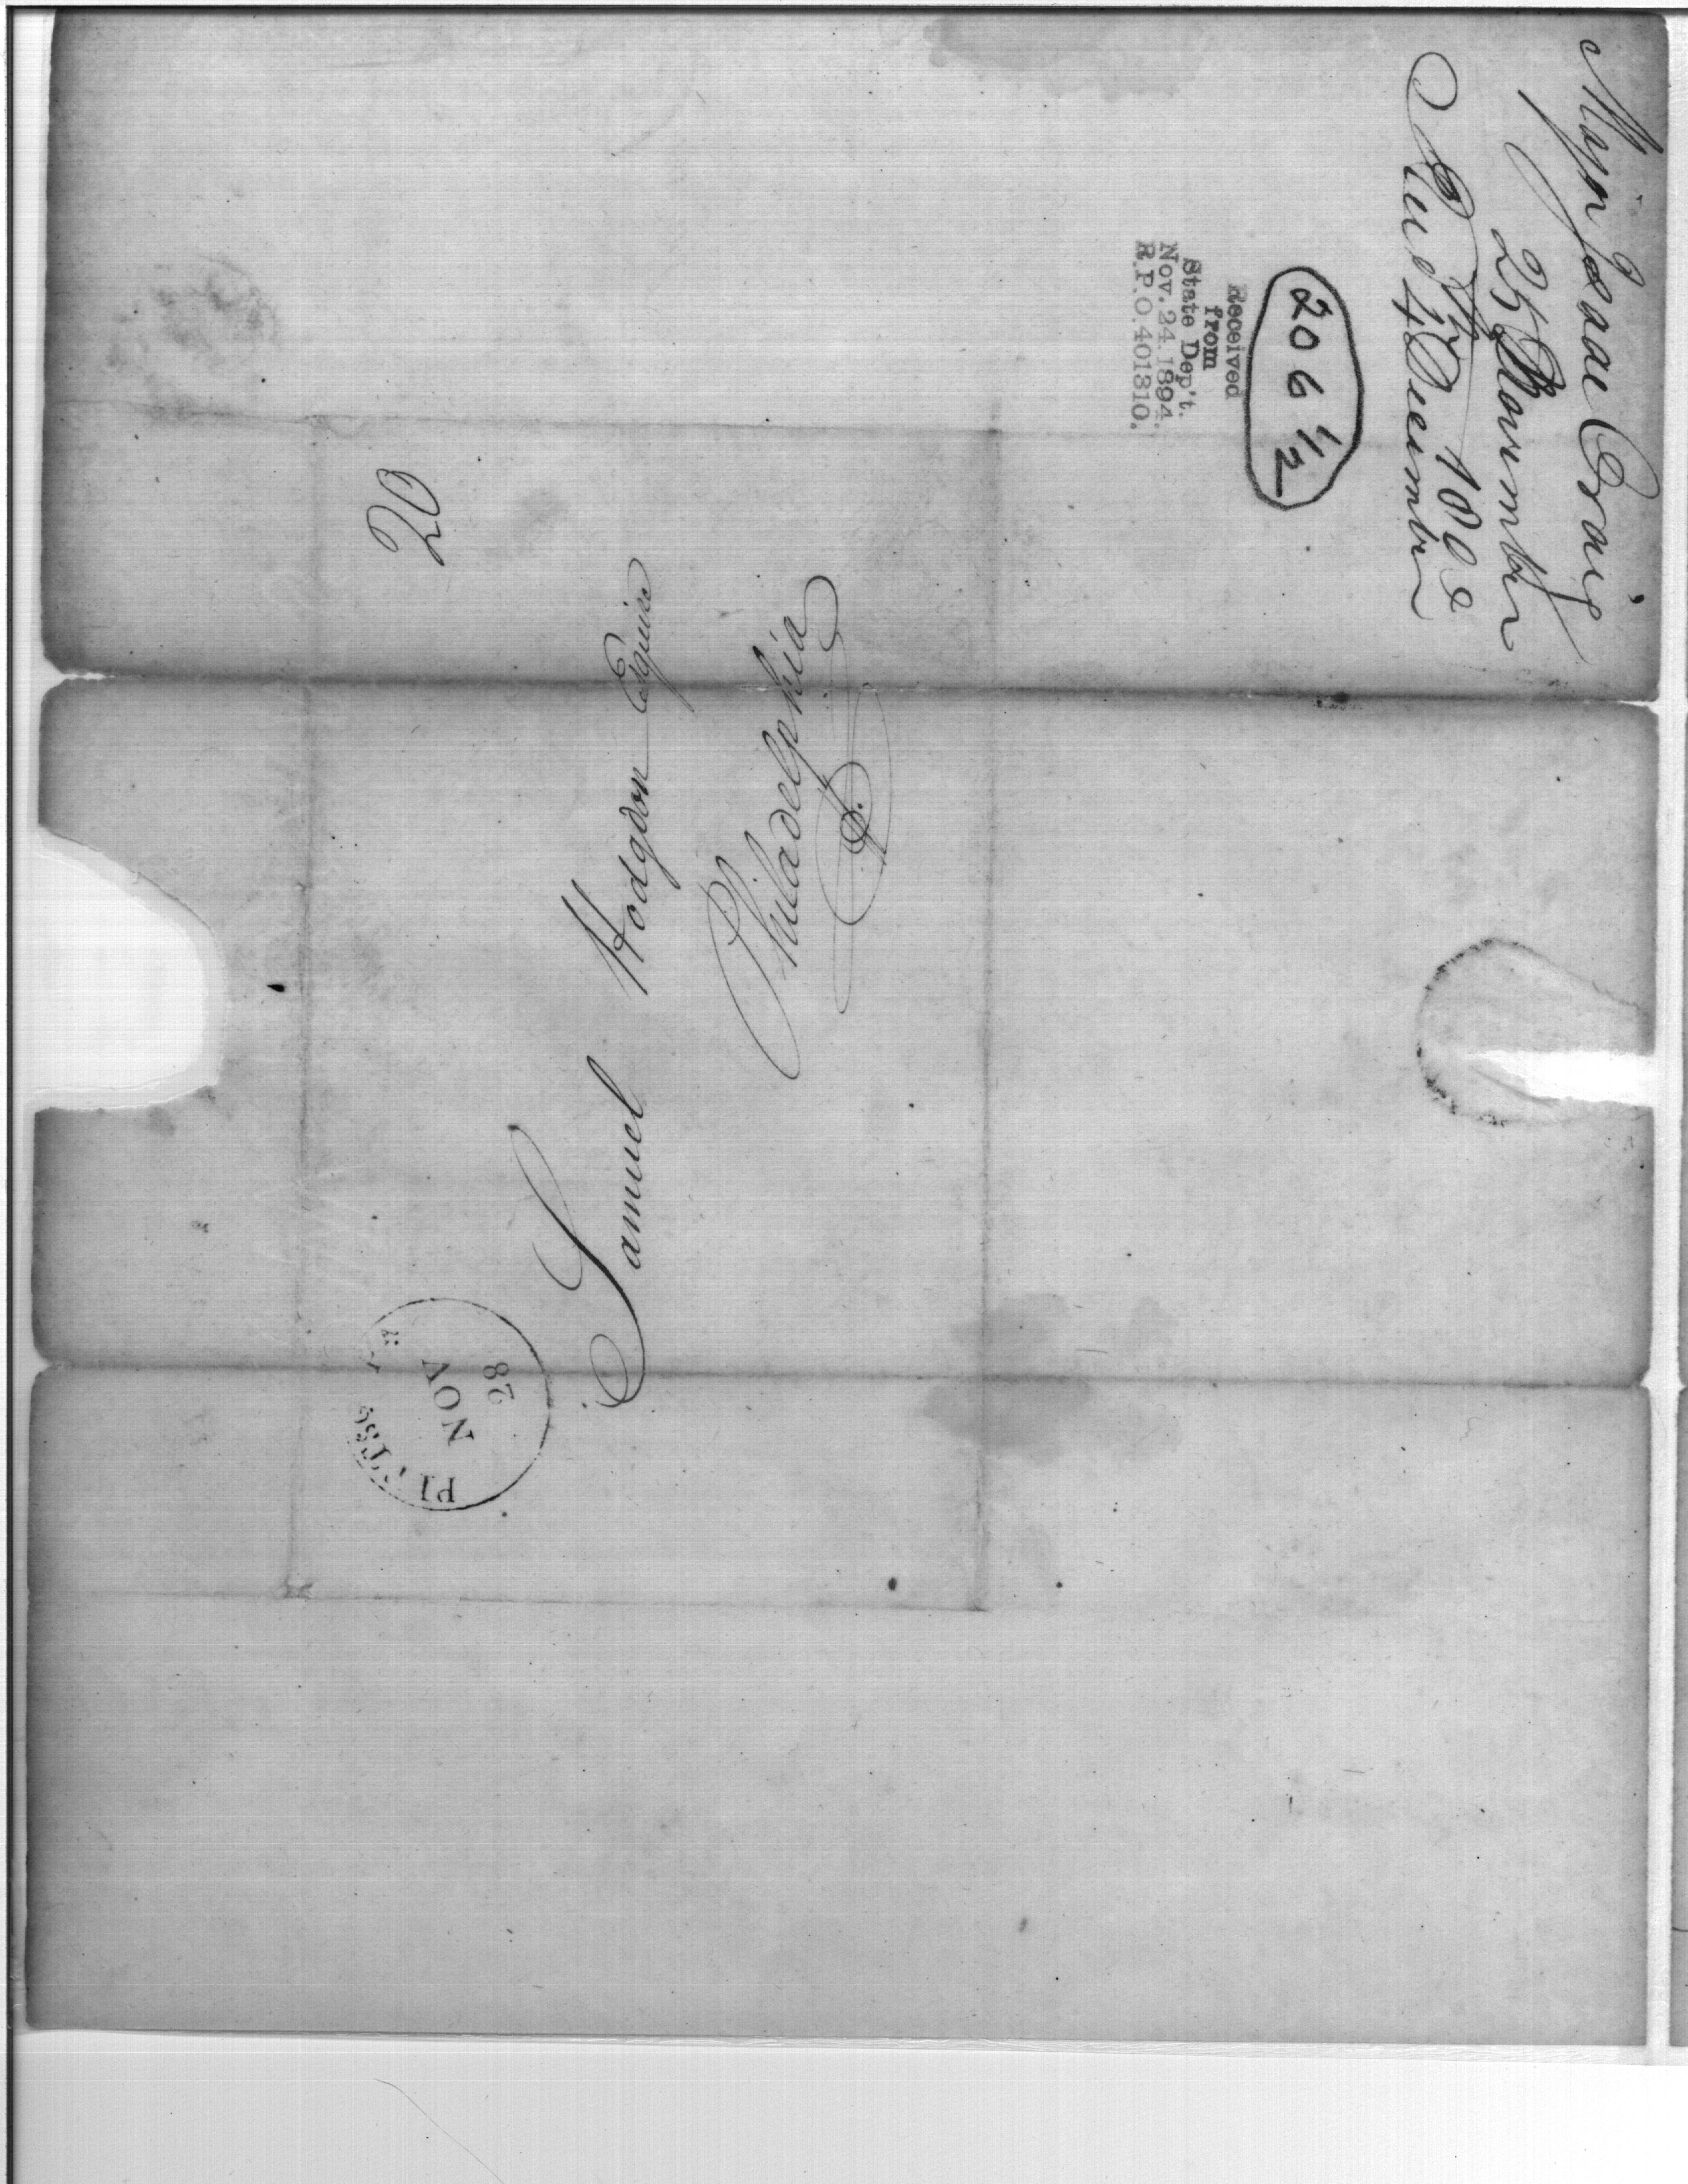 Major Isaac Craig
25 November
1802
Recd 4 December
206 1/2
Received
from
State Dep't.
Nov. 24. 1894.
R.P.O. 401310.
20
Samuel Hodgdon Esquire
Philadelphia
NOV
28